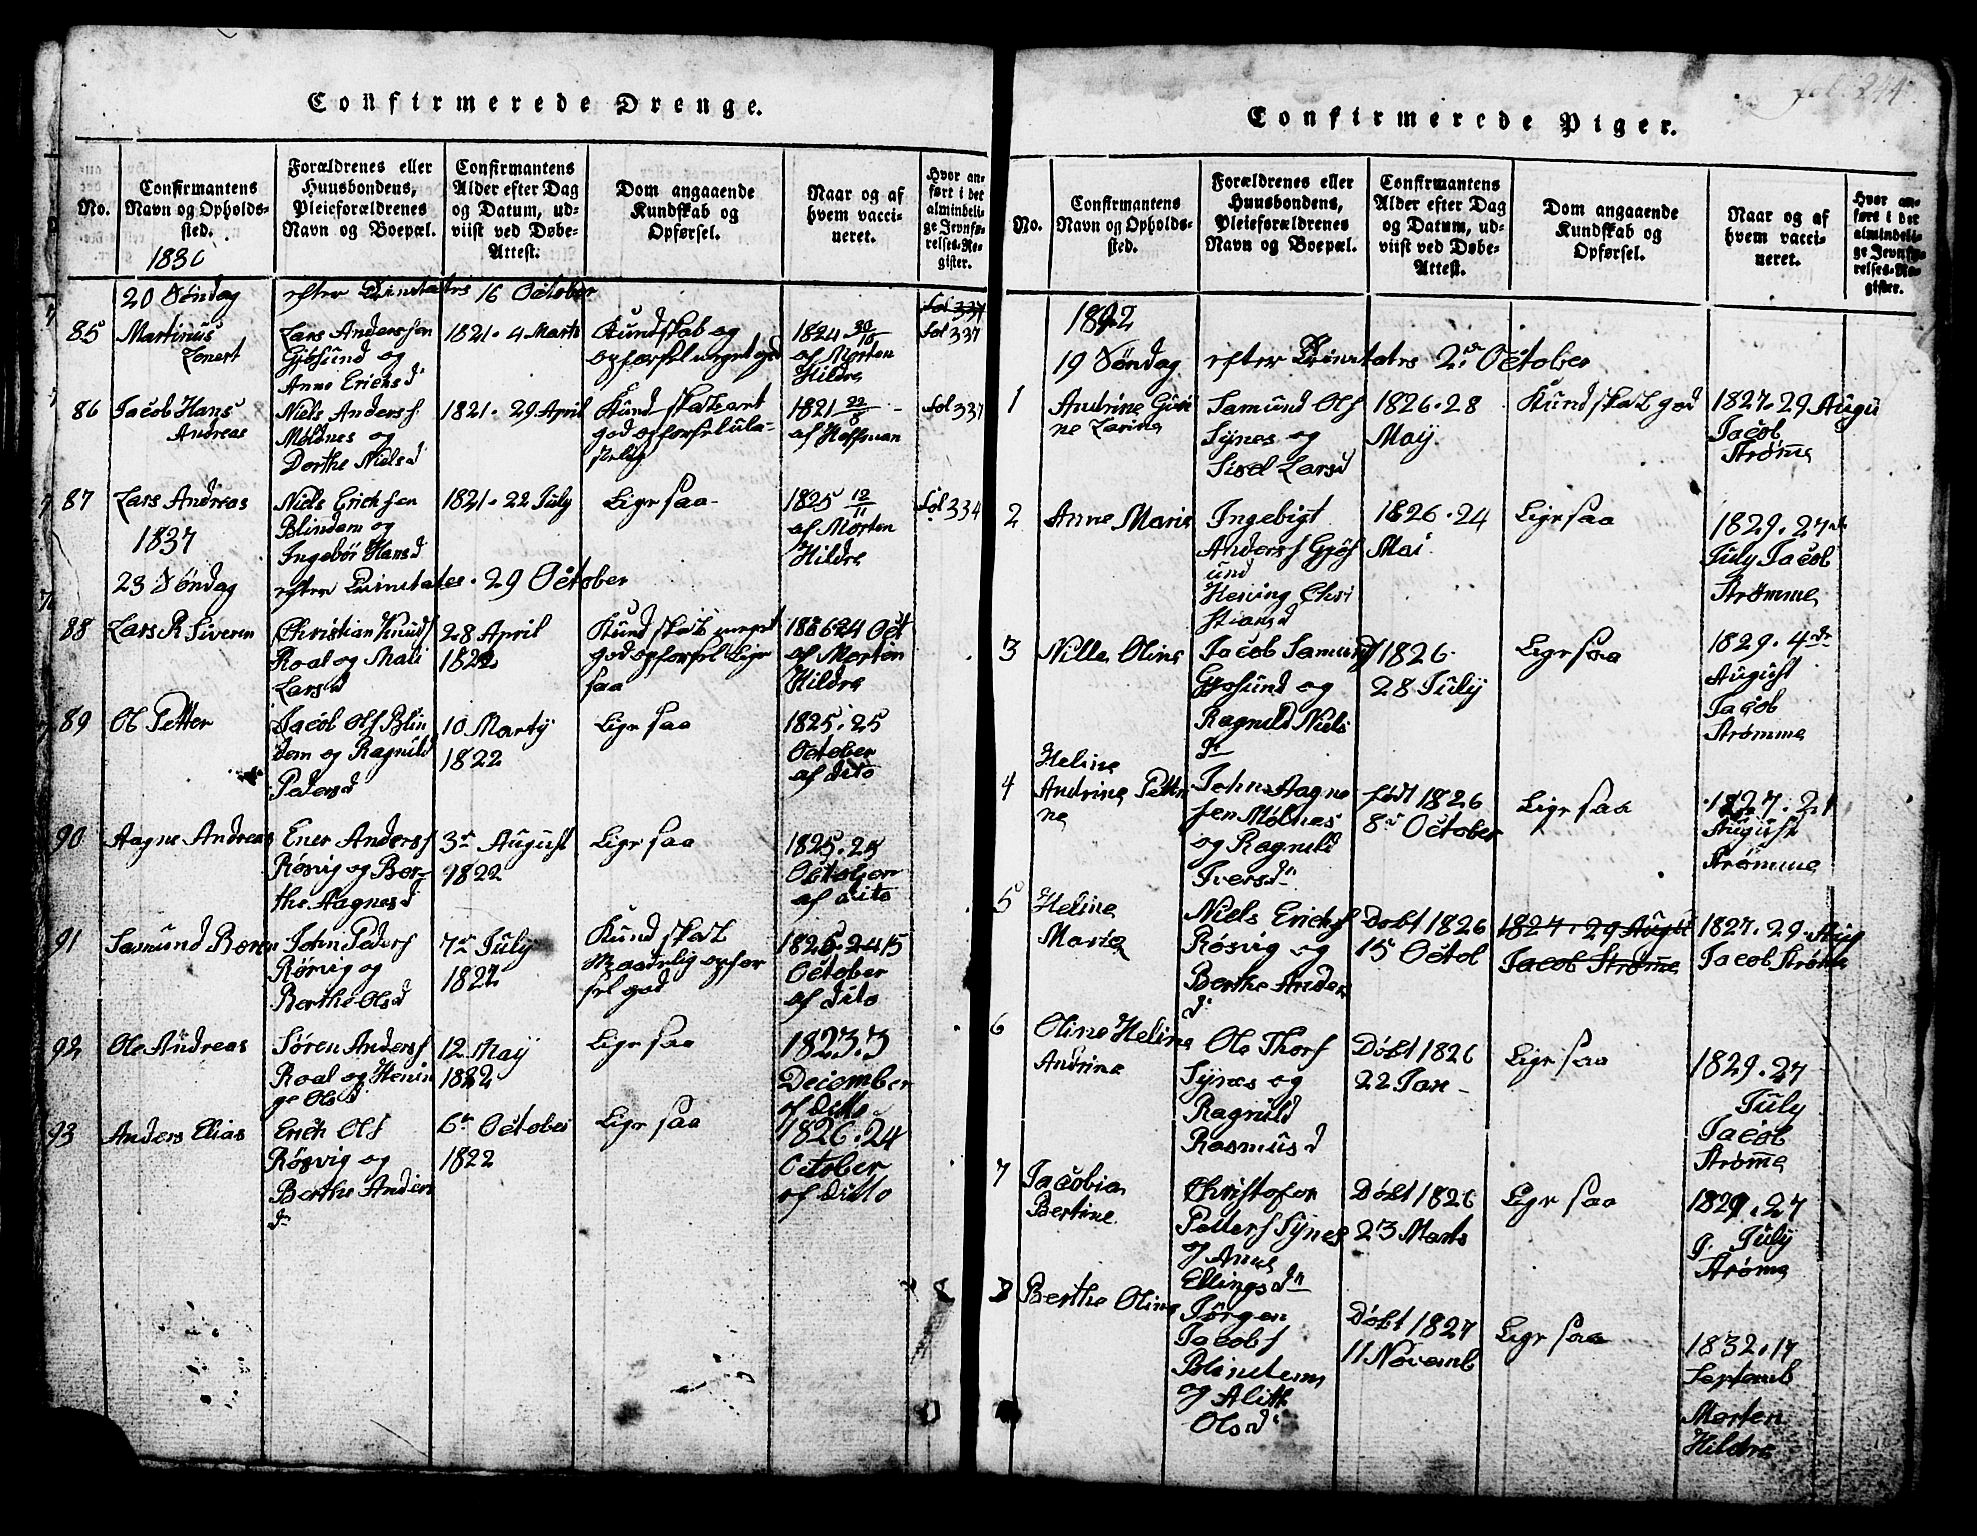 Confirmerede Drenge.
No.
Confirmantens
Navn og Opholds-
sted.
Forældrenes eller
Huusbondens,
Pleieforældrenes
Navn og Boepæl.
Confirmantens
Alder efter Dag
og Datum, ud-
viist ved Døbe-
Attest.
Dom angaaende
Kundskab og
Opførsel.
Naar og af
hvem vacci-
neret.
Hvor an-
ført i det
almindeli-
ge Jevnfø-
relses-Re-
gister.
1836
20 Søndag efter Trinitates 16 October
fol 337
85
Martinus
Lenert
Lars Anderssen
Gjøsund og
Anne Ericksd
1821. 4 Marts
Kundskab og
opførsel meget god
1824 30/10
af Morten
Hildre
fol 337
86
Jacob Hans
Andreas
Niels Andersf.
Moldnes og
Dorthe Nielsd
1821. 29 April
god opførsel ula-
stelig
1821 22/8
af Hoffman
fol 337
87
Lars Andreas
Niels Erichsen
Blindem og
Ingebør Hansd
1821. 22 July
Lige saa
1825 12/11
af Morten
Hildre
fol 334
1837
23 Søndag efter Trinitates. 29 October
88
Lars R Siveren
Christian Knuds
Roal og Mali
Larsd
28 April
1822
Kundskab meget
god opførsel Lige
saa
24 Oct
af Morten
Hildre
89
Ol Petter
Jacob Olsf Blin
dem og Ragnild
Pedersd
10 Martÿ
1822
Lige saa
1825. 25
October
af dito
90
Aagne Andreas
Ener Andersf
Røsvig og Ber-
the Aagnesd
3de August
1822
Lige saa
1825. 25
October
af dito
91
Samund Beren
John Pedersf
Rørvig og
Berthe Olsd
7de July
1822
Kundskab
Maadelig opfør
sel god
October
af dito
92
Ole Andreas
Søren Andersf
Roal og Henin
ge Olsd
12 Maÿ
1822
Lige saa
1823. 3
December
af ditto
93
Anders Elias
Erich Olsf
Røsvig og
Berthe Anders
dr
6te October
1822
Lige saa
1826. 24
October
af ditto
fol. 244
Confirmerede Piger.
No.
Confirmantens
Navn og Opholds-
sted.
Forældrenes eller
Huusbondens,
Pleieforældrenes
Navn og Boepæl.
Confirmantens
Alder efter Dag
og Datum, ud-
viist ved Døbe-
Attest.
Dom angaaende
Kundskab og
Opførsel.
Naar og af
hvem vacci-
neret.
Hvor an-
ført i det
almindeli-
ge Jevnfø-
relses-Re-
gister.
1842
19 Søndag efter Trinitates 2de October
1
Andrine Guri
ne Larine
Samund Olsf
Synes og
Sisel Larsd
1826. 28
Maÿ
Kundskab god
1827. 29 Augu
Jacob
Strømme
2
Anne Marie
Ingebigt
Andersf Gjøs
und
Hening Chri
stiansd
1826. 24
Mai
Lige saa
1829. 27de
July Jacob
Strømme
3
Nille Oline
Jacob Samunds
Gjøsund og
Ragnild Niels
dr
1826.
28 Julÿ
Lige saa
1829. 4de
August
Jacob
Strømme
4
Heline
Andrine Petri
ne
John Aagne
sen Molnes
og Ragnild
Iversdr
født 1826
8de October
Lige saa
1827. 21
August
Strømme
5
Heline
Marie
Niels Erichsf
Røsvig og
Berthe Anders
dr
Døbt 1826
15 Octob
1827. 29 Augu
Jacob Strømme
1827. 29. Aug
Jacob Strømme
6
Oline Helene
Andrine
Ole Thorsf
Synes og
Ragnild
Rasmusd
Døbt 1826
22 Jan-
Lige saa
1829. 27
July
Jacob
Strøme
7
Jacobia
Bertine
Christofer
Pettersf Synes
og Anne
Ellingsdr
Døbt 1826
23 Marts
Lige saa
1829. 27
J. July
Strøme
8
Berthe Oline
Jørgen
Jacobsf
Blindem
og Alith
Olsd
Døbt 1827
11 Novemb
Lige saa
1832. 17
Septemb
Morten
Hildre